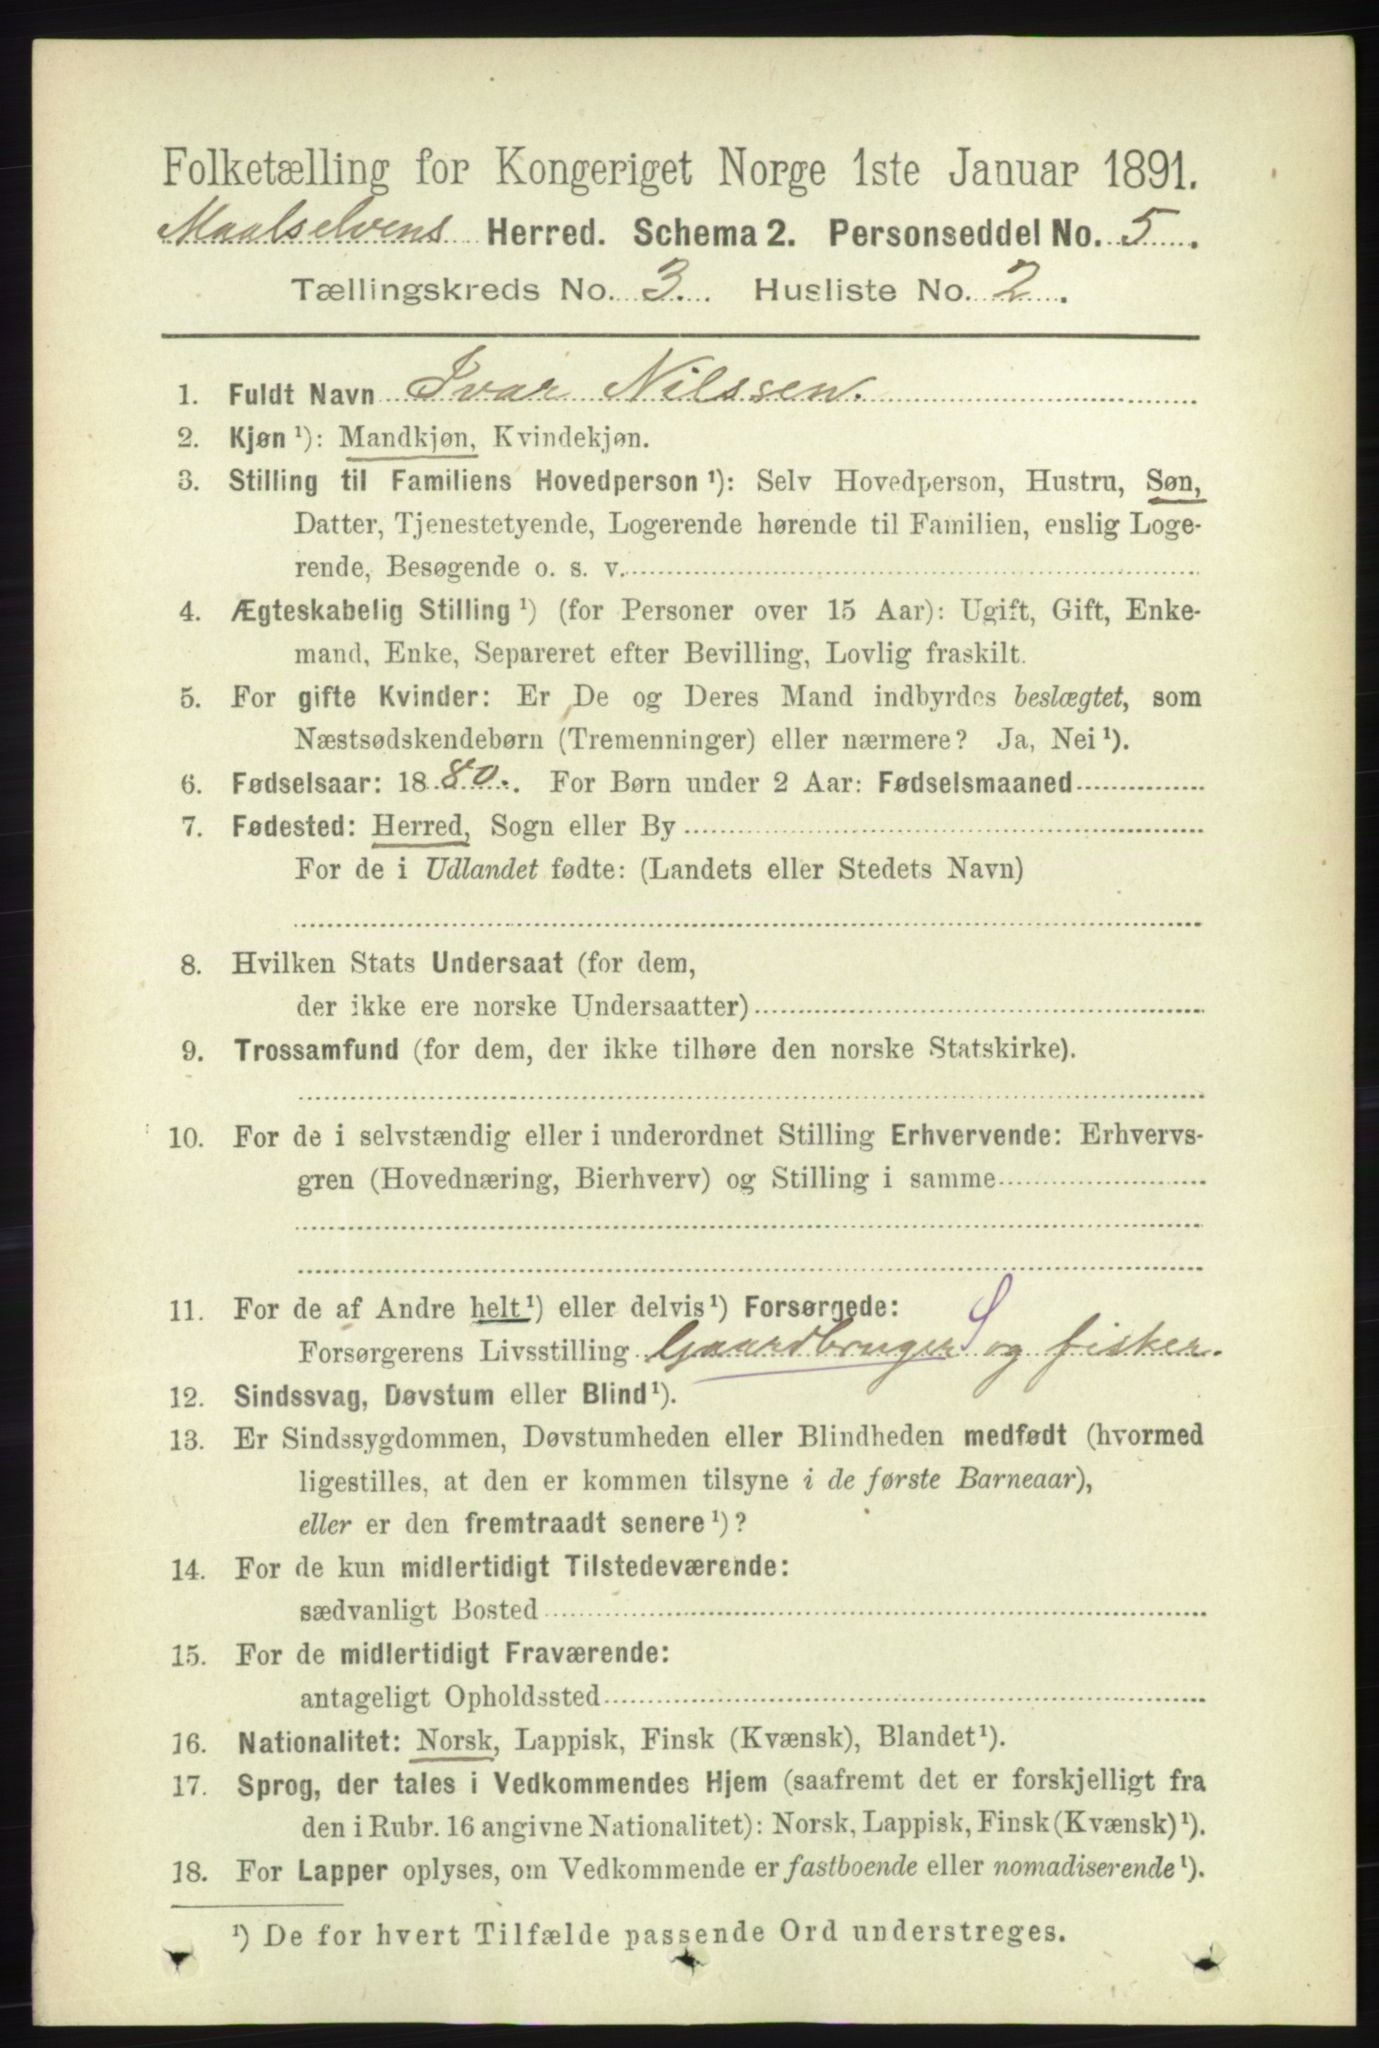 Folketælling for Kongeriget Norge 1ste Januar 1891.
Maalselvens Herred. Schema 2. Personseddel No. 5.
Tællingskreds No. 3. Husliste No. 2.
1. Fuldt Navn Ivar Nilssen.
2. Kjøn ¹): Mandkjøn, Kvindekjøn.
3. Stilling til Familiens Hovedperson ¹): Selv Hovedperson, Hustru, Søn,
Datter, Tjenestetyende, Logerende hørende til Familien, enslig Loge-
rende, Besøgende o. s. v.
4. Ægteskabelig Stilling ¹) (for Personer over 15 Aar): Ugift, Gift, Enke-
mand, Enke, Separeret efter Bevilling, Lovlig fraskilt.
5. For gifte Kvinder: Er De og Deres Mand indbyrdes beslægtet, som
Næstsødskendebørn (Tremenninger) eller nærmere? Ja, Nei ¹).
6. Fødselsaar: 1880. For Børn under 2 Aar: Fødselsmaaned
7. Fødested: Herred, Sogn eller By
For de i Udlandet fødte: (Landets eller Stedets Navn)
8. Hvilken Stats Undersaat (for dem,
der ikke ere norske Undersaatter)
9. Trossamfund (for dem, der ikke tilhøre den norske Statskirke).
10. For de i selvstændig eller i underordnet Stilling Erhvervende: Erhvervs-
gren (Hovednæring, Bierhverv) og Stilling i samme
11. For de af Andre helt ¹) eller delvis ¹) Forsørgede:
Forsørgerens Livsstilling Gaardbruger S og fisker.
12. Sindssvag, Døvstum eller Blind ¹).
13. Er Sindssygdommen, Døvstumheden eller Blindheden medfødt (hvormed
ligestilles, at den er kommen tilsyne i de første Barneaar),
eller er den fremtraadt senere ¹)?
14. For de kun midlertidigt Tilstedeværende:
sædvanligt Bosted
15. For de midlertidigt Fraværende:
antageligt Opholdssted
16. Nationalitet: Norsk, Lappisk, Finsk (Kvænsk), Blandet ¹).
17. Sprog, der tales i Vedkommendes Hjem (saafremt det er forskjelligt fra
den i Rubr. 16 angivne Nationalitet): Norsk, Lappisk, Finsk (Kvænsk) ¹).
18. For Lapper oplyses, om Vedkommende er fastboende eller nomadiserende ¹).
¹) De for hvert Tilfælde passende Ord understreges.